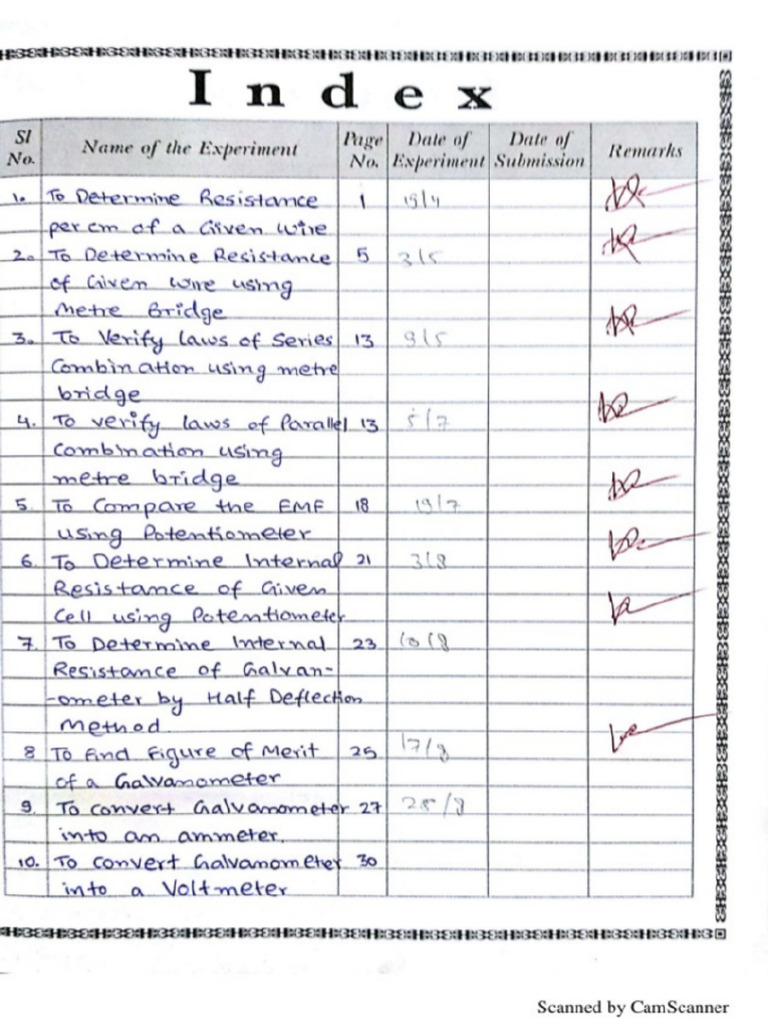 Index
Sl No. Name of the Experiment Page No. Date of Experiment Date of Submission Remarks
1. To Determine Resistance 1 19/4
per cm of a Given Wire
2. To Determine Resistance 5 3/5
of Given Wire using
Metre Bridge
3. To Verify laws of Series 13 9/5
Combination using metre
bridge
4. To verify laws of Parallel 13 5/7
Combination using
metre bridge
5. To Compare the EMF 18 19/7
using Potentiometer
6. To Determine Internal 21 3/8
Resistance of Given
Cell using Potentiometer
7. To Determine Internal 23 10/8
Resistance of Galvan-
-ometer by Half Deflection
Method.
8 To find Figure of Merit 25 17/8
of a Galvanometer
9. To convert Galvanometer 27
into an ammeter.
10. To convert Galvanometer 30
into a Voltmeter
Scanned by CamScanner